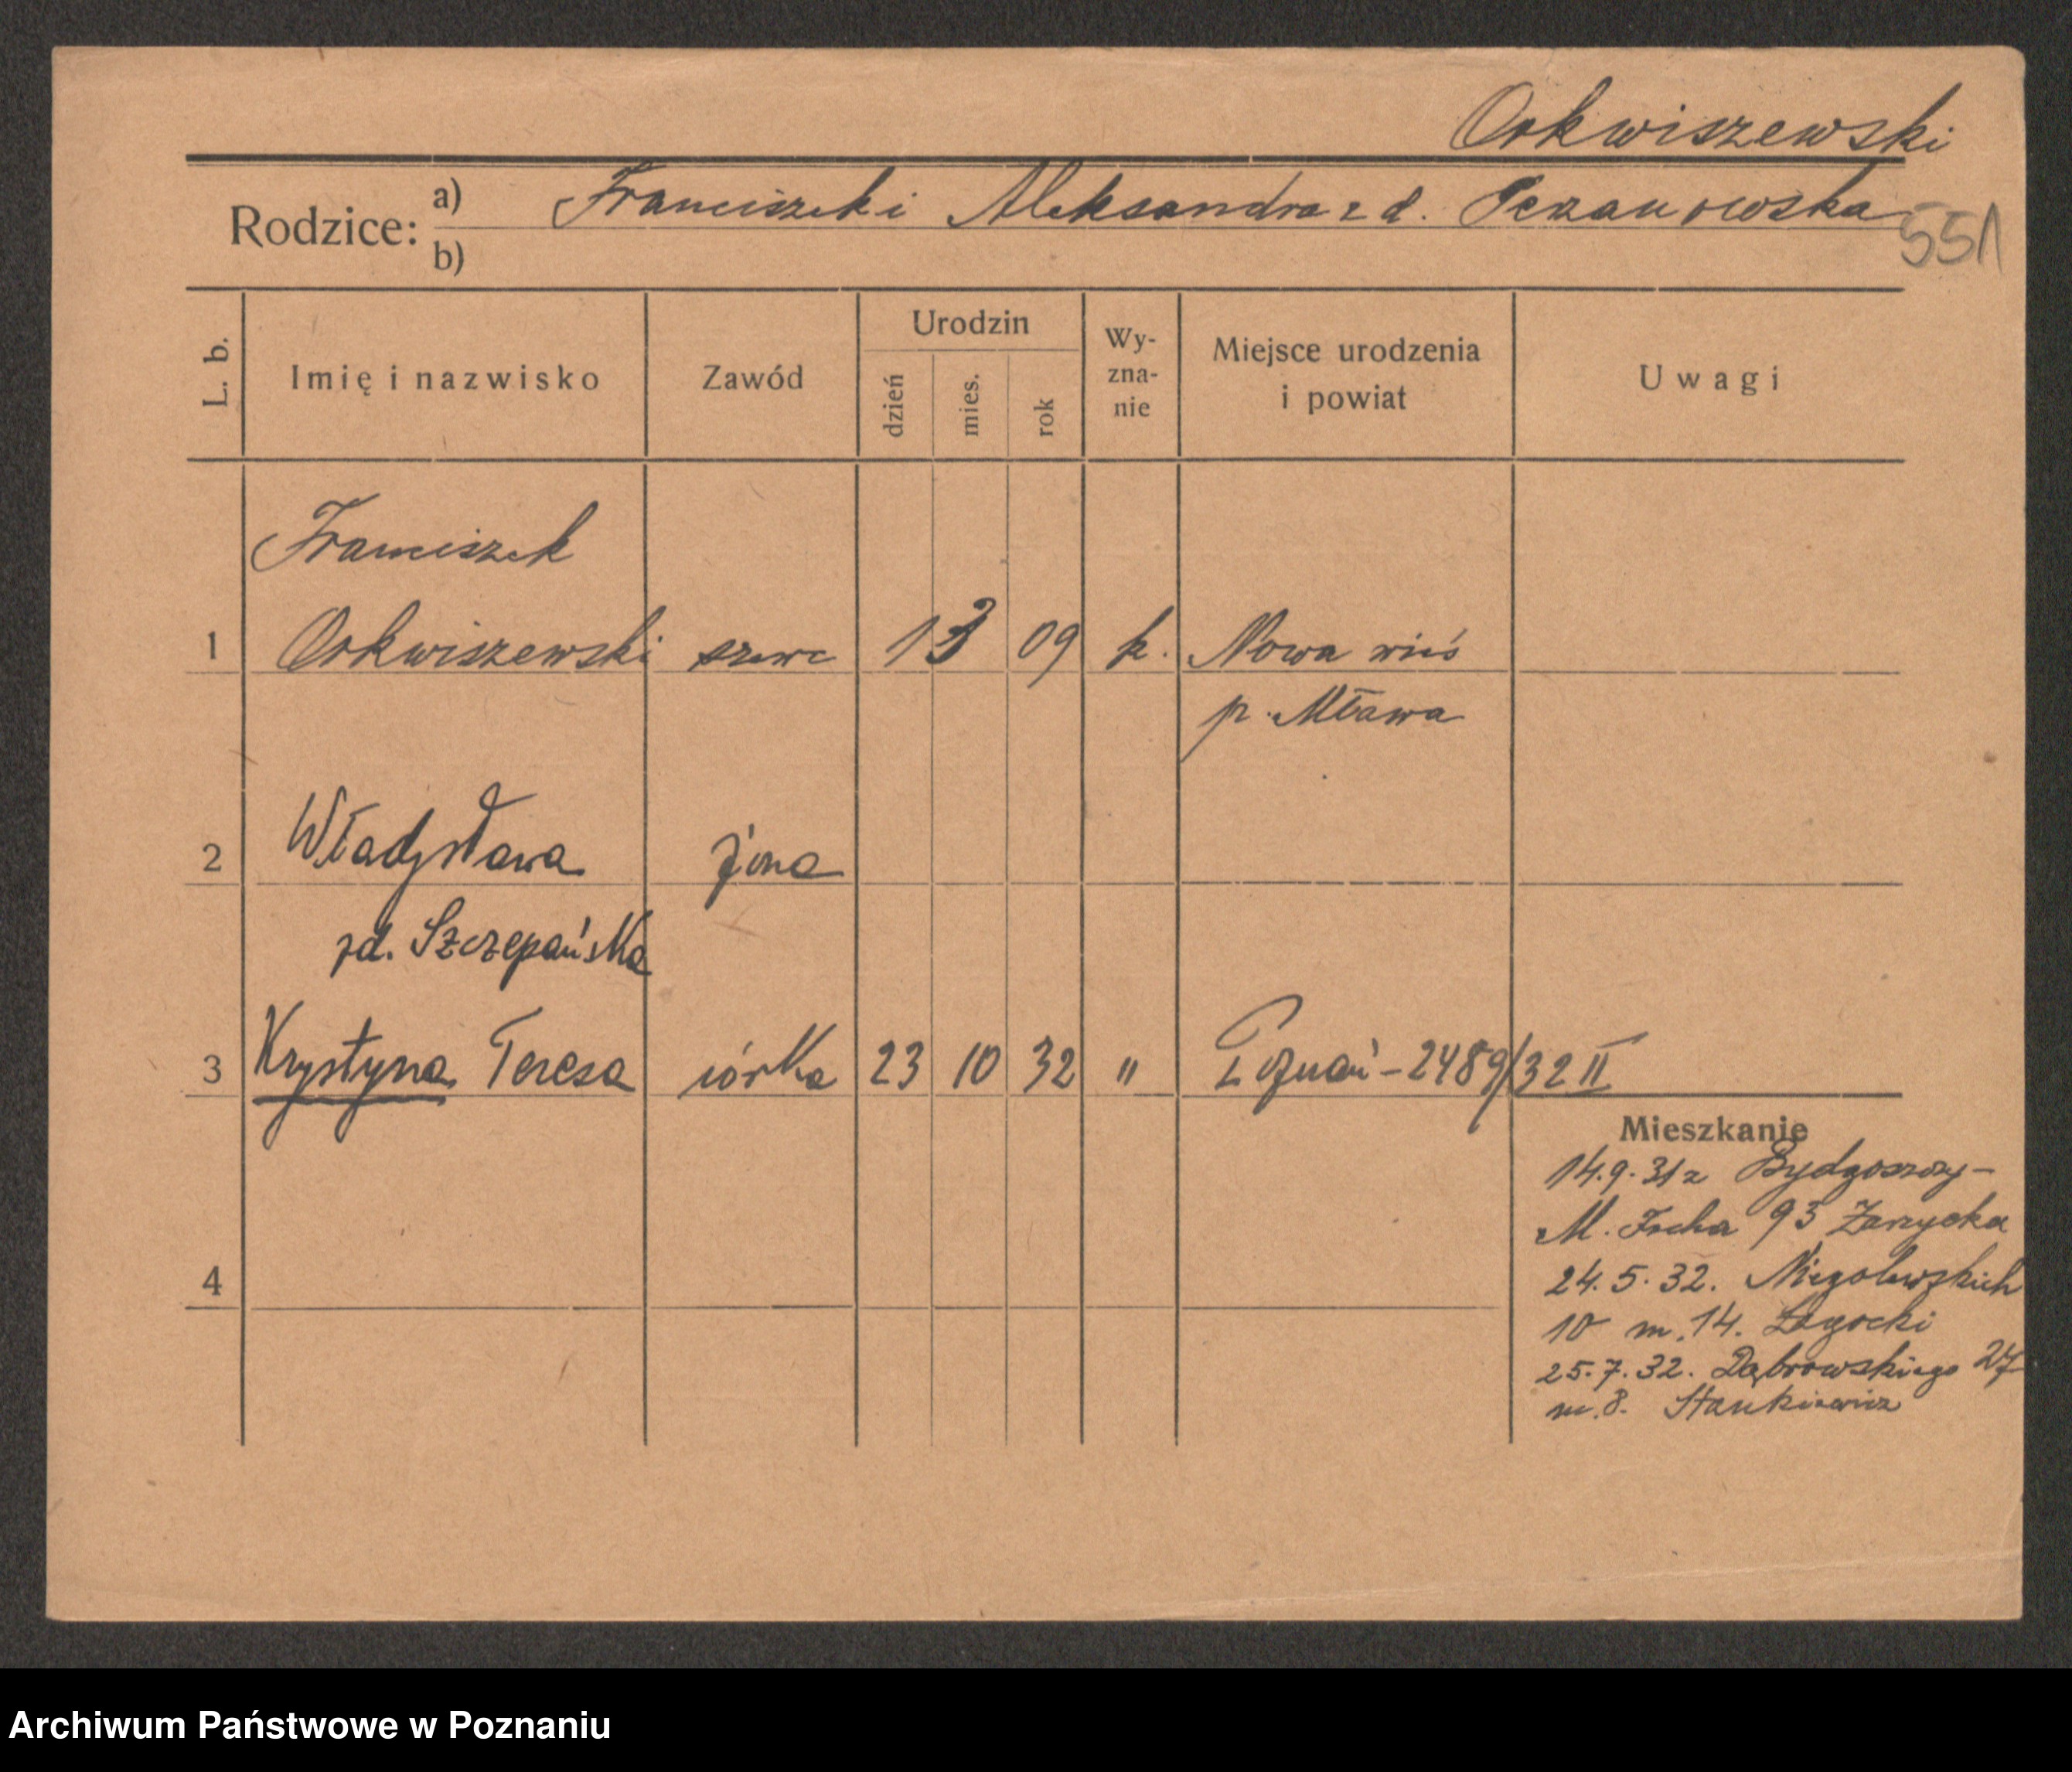 Orkwiszewski
Rodzice: a) Franciszek i Aleksandra z d.
b)
551
L. b.
Imię i nazwisko
Zawód
Urodzin
dzień
mies.
rok
Wy-
zna-
nie
Miejsce urodzenia
i powiat
Uwagi
Franciszek
1 Orkwiszewski szewc 1 3 09 k. Nowa wieś
p. Mława
2 Władysława żona
zd. Szczepańska
3 Krystyna Teresa córka 23 10 32 " Poznań - 2489/32 II
Mieszkanie
14.9.31 z Bydgoszczy -
M. Focha 93 Zarzycka
4
24.5.32. Niegolewskich
10 m. 14. Zagocki
25.7.32. Dąbrowskiego 27
m. 8. Stankiewicz
Archiwum Państwowe w Poznaniu